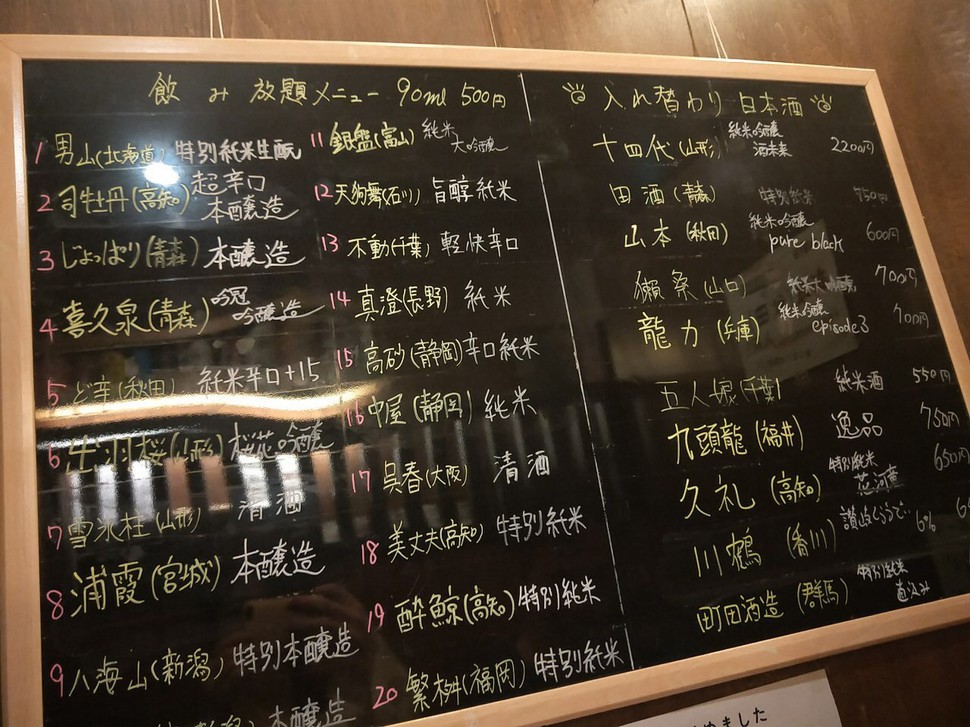 飲み放題メニュー 90ml 500円
1 男山(北海道) 特別純米生酛
2 司牡丹(高知) 超辛口 本醸造
3 じょっぱり(青森) 本醸造
4 喜久泉(青森) 吟冠 吟醸造
5 ど辛(秋田) 純米辛口+15
6 出羽桜(山形) 桜花吟醸
7 雪氷柱(山形) 清酒
8 浦霞(宮城) 本醸造
9 八海山(新潟) 特別本醸造
本醸造
11 銀盤(富山) 純米 大吟醸
12 天狗舞(石川) 旨醇純米
13 不動(千葉) 軽快辛口
14 真澄(長野) 純米
15 高砂(静岡) 辛口純米
16 中屋(静岡) 純米
17 呉春(大阪) 清酒
18 美丈夫(高知) 特別純米
19 酔鯨(高知) 特別純米
20 繁桝(福岡) 特別純米
入れ替わり 日本酒
十四代(山形) 純米吟醸 酒未来 2200円
田酒(青森) 特別純米 750円
山本(秋田) 純米吟醸 pure black 600円
獺祭(山口) 純米大吟醸 700円
龍力(兵庫) 純米吟醸 episode3 700円
五人娘(千葉) 純米酒 550円
九頭龍(福井) 逸品 750円
久礼(高知) 特別純米 650円
川鶴(香川) 讃岐くらうでぃ 6%
町田酒造(群馬) 特別純米 直汲み
めました